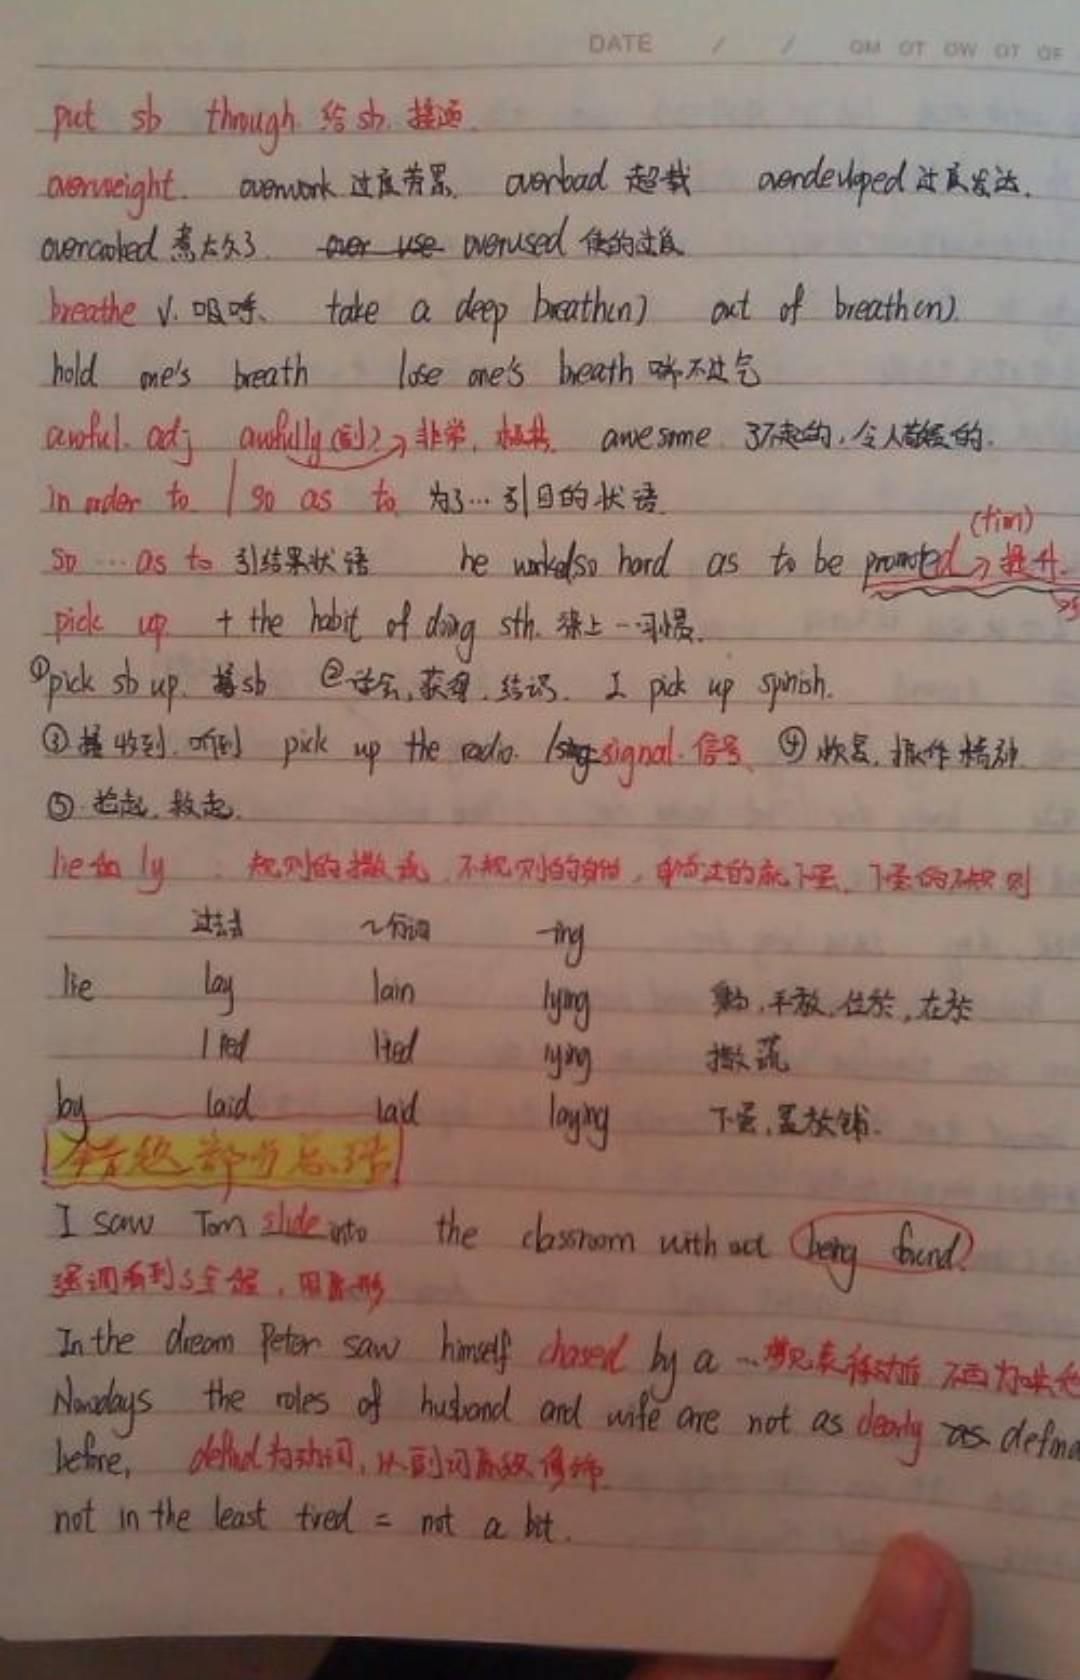 DATE / / OM OT OW OT OF
put sb through. 给sb. 接通.
overweight. overwork 过度劳累. overload 超载 overdeveloped 过度发达.
overcooked 煮太久了. over use overused 使的过度
breathe v. 呼吸. take a deep breath(n) out of breath(n).
hold one's breath lose one's breath 喘不过气
awful. adj awfully(副) → 非常, 极其. awesome 了不起的, 令人敬畏的.
in order to / so as to 为了…引目的状语.
(tion)
so … as to 引结果状语 he worked so hard as to be promoted → 提升.
pick up + the habit of doing sth. 染上一习惯.
①pick sb up. 接sb ②学会, 获得, 结识. I pick up spinish.
③接收到. 听到 pick up the radio. / signal. 信号. ④恢复, 振作精神.
⑤捡起. 救起.
lie 和 ly : 规则的撒谎, 不规则的躺, 躺过的就下蛋, 下蛋的不规则
过去 ~分词 -ing
lie lay lain lying 躺, 平放, 位於, 在於
lied lied lying 撒谎
lay laid laid laying 下蛋, 置放铺.
错题部分总结
I saw Tom slide into the classroom without being found.
强调看到了全程, 用原形
In the dream Peter saw himself chased by a …
Nowdays the roles of husband and wife are not as clearly as
before, defind 为动词, 从副词高级修饰.
not in the least tired = not a bit.